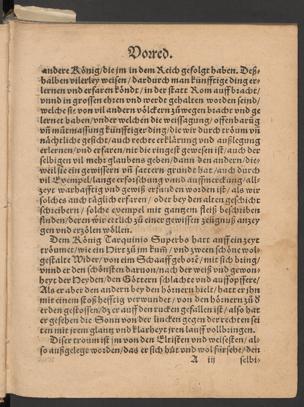 Vorred.
andere König/ die jm in dem Reich gefolgt haben. Deß-
halben vilerley weisen/ dardurch man künfftige ding er-
lernen vnd erfaren köndt/ in der statt Rom auff bracht/
vnnd in grossen ehren vnd werde gehalten worden seind/
welche sie von vil andern völckern zuwegen bracht vnd ge
lernet haben/ vnder welchen die weissagung/ offenbarūg
vñ můtmassung künfftiger ding/ die wir durch tröum vñ
nächtliche gesicht/ auch rechte erklärung vnd außlegung
erlernen/ vnd erfaren/ nit die ringest gewesen ist/ auch der
selbigen vil mehr glaubens geben/ dann den andern/ die
weil sie ein gewissern vñ satteren grundt hat/ auch durch
vil Exempel/ lange erforschung vnnd auffmerckung/ all-
zeyt warhafftig vnd gewiß erfunden worden ist/ als wir
solches auch täglich erfaren/ oder bey den alten geschicht
schreibern/ solche exempel mit gantzem fleiß beschriben
finden/ deren wir etlich zu einer gewissen zeügnuß anzey
gen vnd erzölen wöllen.
Dem König Tarquinio Superbo hatt auff ein zeyt
getröumt/ wie ein Hirt zu jm kum/ vnd zween schöne wol-
gestalte Wider/ von ein Schaaff geborn/ mit sich bring/
vnnd er den schönsten daruon/ nach der weiß vnd gewon-
heyt der Heyden/ den Göttern schlachte vnd auffopffere/
Als er aber den andern bey den hörnern hielt/ hatt er jhn
mit einem stoß hefftig verwundet/ von den hörnern zů d
erden gestossen/ dz er auff den rucken gefallen ist/ also hat
er gesehen die Sonn von der lincken gegen der rechten sei
ten mit jrem glantz vnd klarheyt jren lauff vollbringen.
Diser troum ist jm von den Elristen vnd weisesten/ al-
so außgelege worden/ das er sich hüt vnd wol fürsehe/ den
A iij selbi-